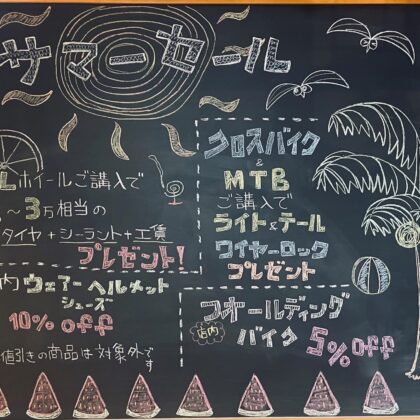 サマーセール
Lホイールご購入で
～3万相当の
タイヤ+シーラント+工賃
プレゼント!
内ウェアーヘルメット
シューズ
10%off
値引きの商品は対象外です
クロスバイク
&
MTB
ご購入で
ライト&テール
ワイヤーロック
プレゼント
フォールディング
店内
バイク 5%off